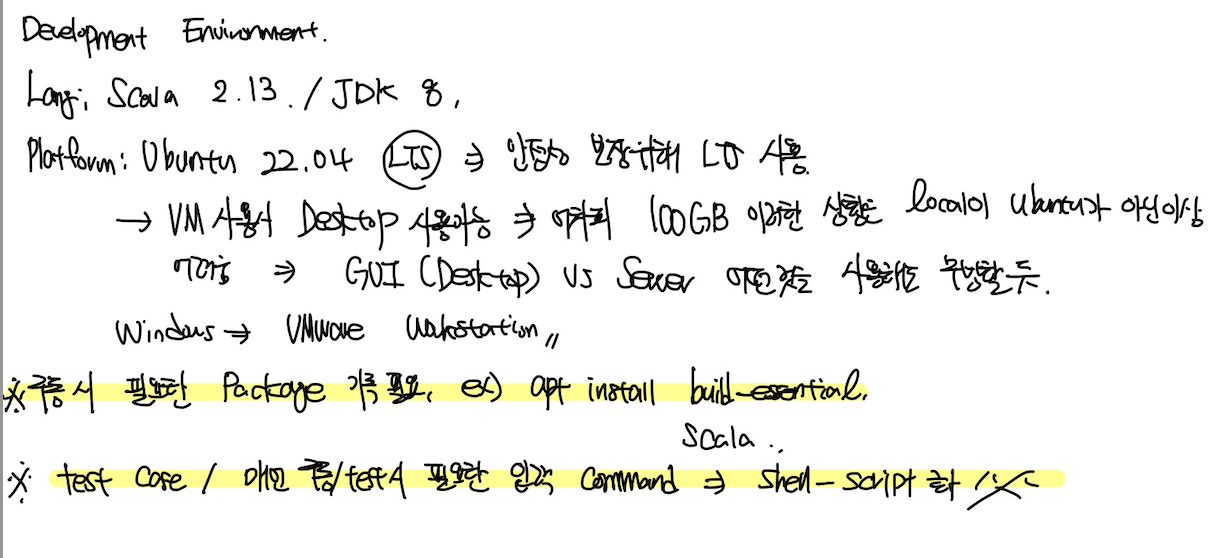 Development Environment.
Lang; Scala 2.13. / JDK 8.
Platform: Ubuntu 22.04 LTS ⇒ 안정성 보장위해 LTS 사용.
→ VM 사용시 Desktop 사용가능 ⇒ 어차피 100GB 이러한 상황은 local이 Ubuntu가 아닌이상
어려움 ⇒ GUI (Desktop) vs Server 어떤것을 사용해도 무방할 듯.
Windows → VMware Workstation 〃
※ 구동시 필요한 Package 기록 필요. ex) apt install build-essential.
Scala.
※ test case / 매인 구동/test시 필요한 입력 Command ⇒ shell-script 화